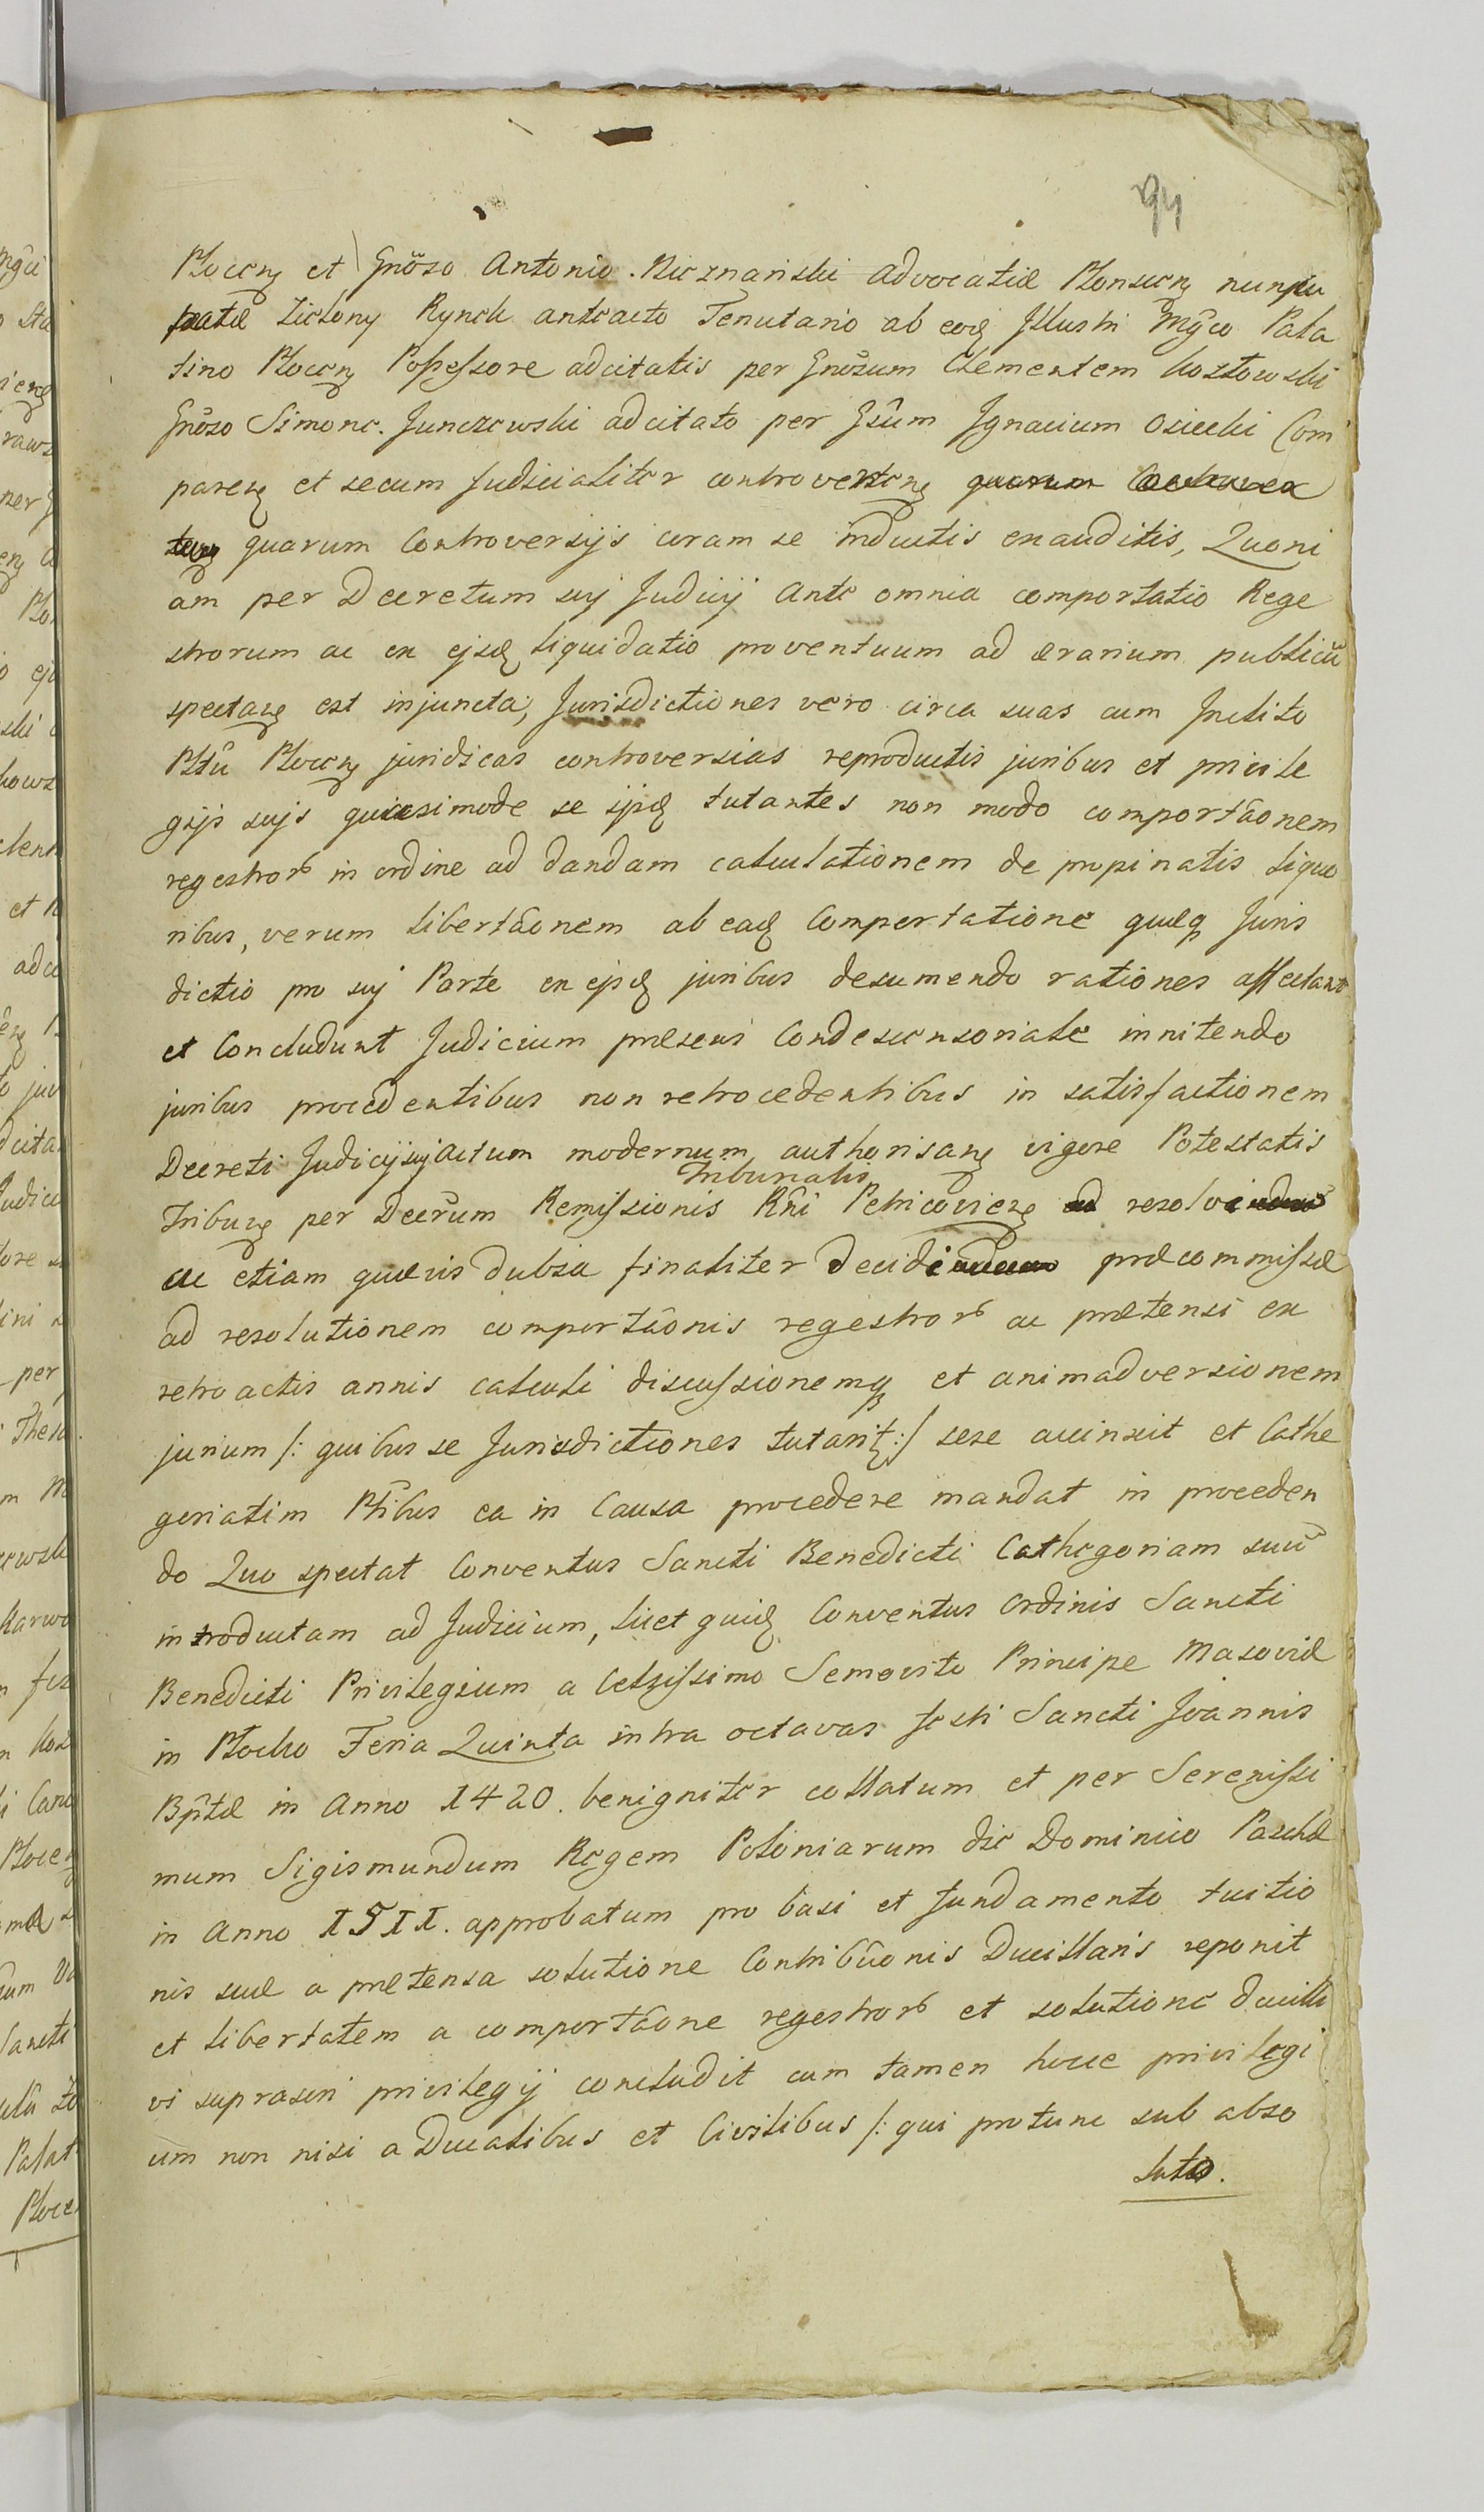 94
Plocen et Gnoso Antonio Nieznański advocatiæ Plonscen nuncu
patæ Zielony Rynek anteacto Tenutario ab eod Illustri Mgco Pala
tino Plocen Possessore adcitatis per Gnosum Clementem Kozłowski
Gnoso Simone Junczewski adcitato per Gsum Ignacium Osiecki Com
paren et secum Judicialiter controverten quarum
quarum Controversijs coram se inductis exauditis, Quoni
am per Decretum suj Judicij ante omnia comportatio Rege
strorum ac ex ejsd liquidatio proventuum ad ærarium publicū
spectan est injuncta, Jurisdictiones vero circa suas cum Inclito
Pltū Plocen juridicas controversias reproductis juribus et privile
gijs sujs quicsimode se ijsd tutantes non modo comportãonem
regestror in ordine ad dandam calculationem de propinatis liquo
ribus, verum libertãonem ab ead Comportatione quæq Juris
dictio pro suj Parte ex ejsd juribus desumendo rationes affectant
et Concludunt Judicium præsens Condescensoriale innitendo
juribus procedentibus non retrocedentibus in satisfactionem
Decreti Judicij suj actum modernum authorisan vigore Potestatis
Tribunalis
Tribun per Decrum Remissionis Rni Petricovien ad resolvendus
ac etiam quævis dubia finaliter decidendum præcommissæ
ad resolutionem comportãonis regestror ac prætensi ex
retroactis annis calculi discussionemq et animadversionem
jurium /: quibus se Jurisdictiones tutant :/ sese accinxit et Cathe
goriatim Ptibus ea in Causa procedere mandat in proceden
do Quo spectat Conventus Sancti Benedicti Cathegoriam suū
introductam ad Judicium, licet quid Conventus Ordinis Sancti
Benedicti Privilegium a Celsissimo Semovito Principe Masoviæ
in Plocko Feria Quinta intra octavas festi Sancti Joannis
Bptæ in Anno 1420. benigniter collatum et per Serenissi
mum Sigismundum Regem Poloniarum die Dominico Paschæ
in Anno 1511. approbatum pro basi et fundamento tuitio
nis suæ a prætensa solutione Contribūonis Ducillaris reponit
et libertatem a comportãone regestror et solutione ducilli
vi suprascri privilegij concludit cum tamen hocce privilegi
um non nisi a Ducalibus et Civilibus /: qui protunc sub abso
luto.